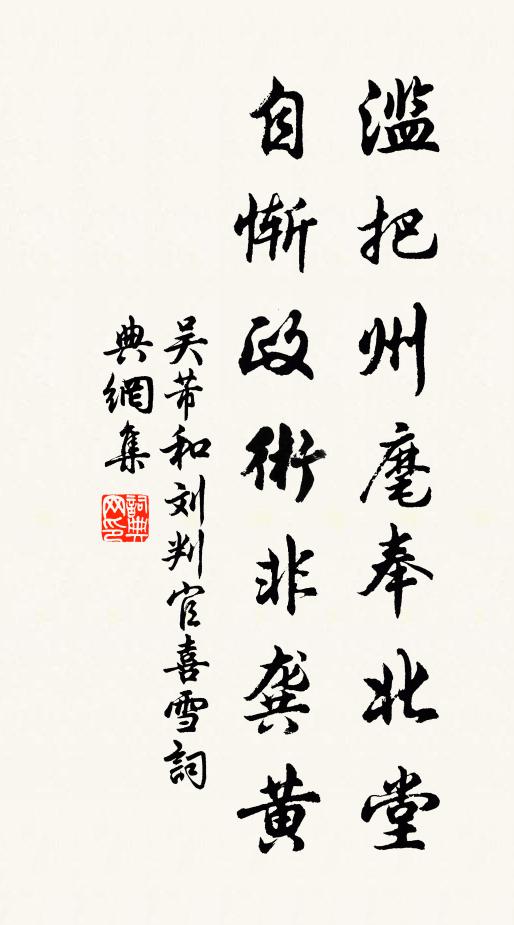 滥把州麾奉北堂
自惭政術非龚黄
吴芾和刘判官喜雪詞
典網集
詞典网印